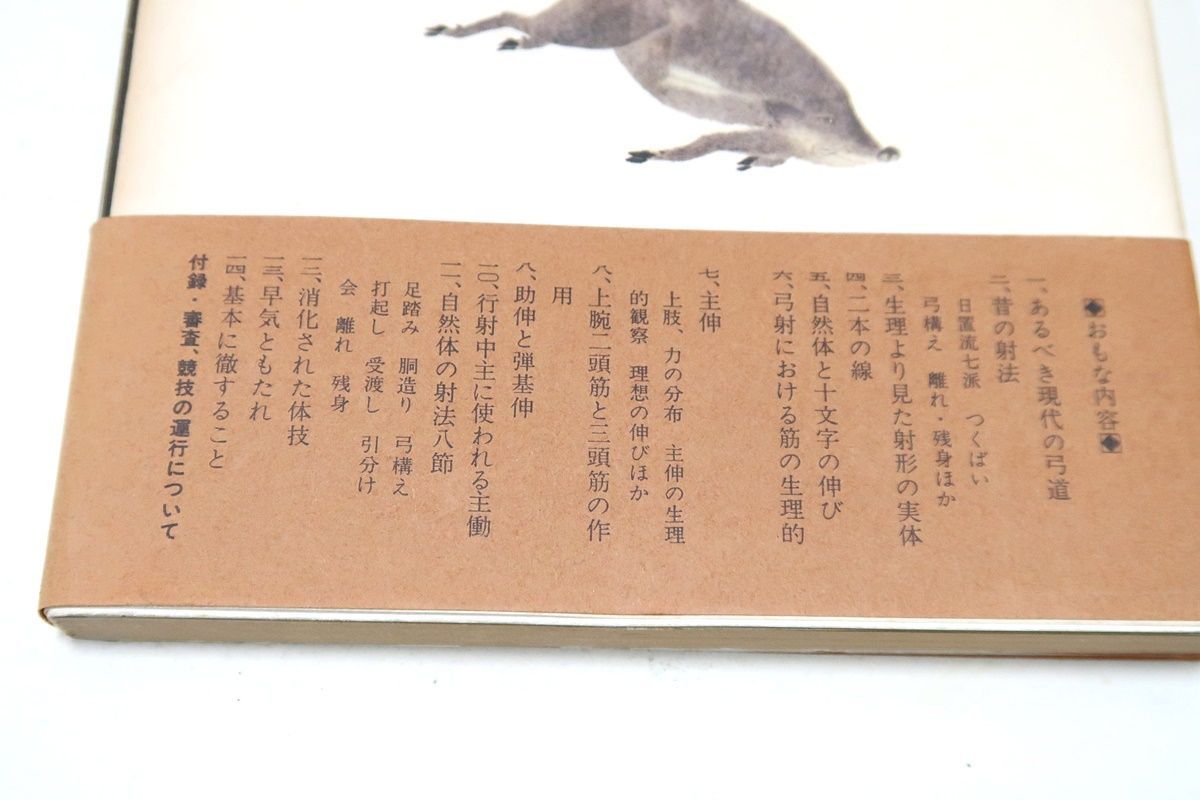 ◆おもな内容◆
一、あるべき現代の弓道
二、昔の射法
日置流七派 つくばい
弓構え 離れ・残身ほか
三、生理より見た射形の実体
四、二本の線
五、自然体と十文字の伸び
六、弓射における筋の生理的
七、主伸
上肢、力の分布 主伸の生理
的観察 理想の伸びほか
八、上腕二頭筋と三頭筋の作
用
八、助伸と弾基伸
一〇、行射中主に使われる主働
一一、自然体の射法八節
足踏み 胴造り 弓構え
打起し 受渡し 引分け
会 離れ 残身
一二、消化された体技
一三、早気ともたれ
一四、基本に徹すること
付録・審査、競技の運行について